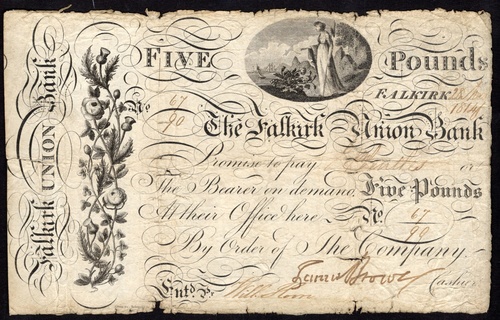 Falkirk UNION Bank
FIVE Pounds
FALKIRK
No 67
90
The Falkirk Union Bank
Promise to pay or
The Bearer on demand Five Pounds
At their Office here No 67
90
By Order of The Company.
Entd. Cashier